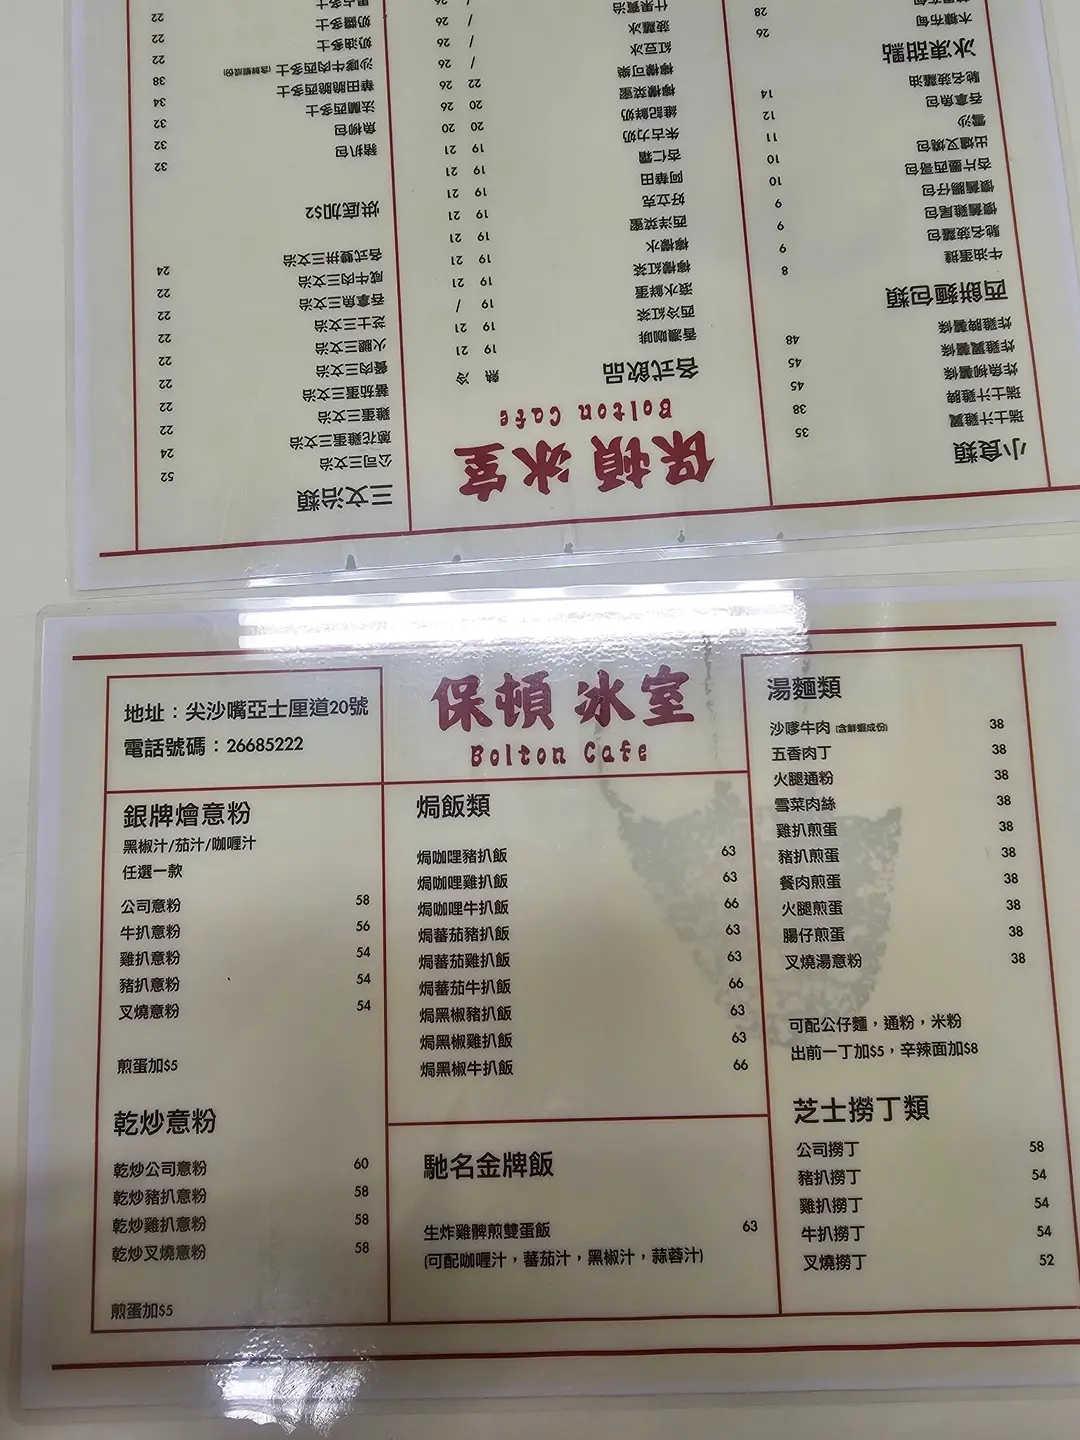 保頓冰室
Bolton Cafe
地址：尖沙嘴亞士厘道20號
電話號碼：26685222
銀牌燴意粉
黑椒汁/茄汁/咖喱汁
任選一款
公司意粉 58
牛扒意粉 56
雞扒意粉 54
豬扒意粉 54
叉燒意粉 54
煎蛋加$5
乾炒意粉
乾炒公司意粉 60
乾炒豬扒意粉 58
乾炒雞扒意粉 58
乾炒叉燒意粉 58
煎蛋加$5
焗飯類
焗咖哩豬扒飯 63
焗咖哩雞扒飯 63
焗咖哩牛扒飯 66
焗蕃茄豬扒飯 63
焗蕃茄雞扒飯 63
焗蕃茄牛扒飯 66
焗黑椒豬扒飯 63
焗黑椒雞扒飯 63
焗黑椒牛扒飯 66
馳名金牌飯
生炸雞髀煎雙蛋飯 63
(可配咖喱汁，蕃茄汁，黑椒汁，蒜蓉汁)
湯麵類
沙嗲牛肉 (含鮮蝦成份) 38
五香肉丁 38
火腿通粉 38
雪菜肉絲 38
雞扒煎蛋 38
豬扒煎蛋 38
餐肉煎蛋 38
火腿煎蛋 38
腸仔煎蛋 38
叉燒湯意粉 38
可配公仔麵，通粉，米粉
出前一丁加$5，辛辣面加$8
芝士撈丁類
公司撈丁 58
豬扒撈丁 54
雞扒撈丁 54
牛扒撈丁 54
叉燒撈丁 52
保頓冰室
Bolton Cafe
小食類
瑞士汁雞翼 35
瑞士汁雞髀 38
炸魚柳薯條 45
炸雞翼薯條 45
炸雞髀薯條 48
西餅麵包類
牛油蛋撻 8
馳名菠蘿包 9
懷舊雞尾包 9
懷舊腸仔包 10
杏片墨西哥包 10
出爐叉燒包 11
雪沙 12
吞拿魚包
馳名菠蘿油 14
冰凍甜點
木糠布甸 26
28
各式飲品 熱 冷
香濃咖啡 19 21
西冷紅茶 19 21
滾水鮮蛋 19 /
檸檬紅茶 19 21
檸檬水 19 21
西洋菜蜜 19 21
好立克 19 21
阿華田 19 21
杏仁霜 19 21
朱古力奶 20 20
維記鮮奶 20 26
檸檬菜蜜 22 26
檸檬可樂 / 26
紅豆冰 / 26
菠蘿冰 / 26
什果賓治 / 26
三文治類
公司三文治 52
蔥花雞蛋三文治 24
雞蛋三文治 22
蕃茄蛋三文治 22
餐肉三文治 22
火腿三文治 22
芝士三文治 22
吞拿魚三文治 22
咸牛肉三文治 22
各式雙拼三文治 24
烘底加$2
豬扒包 32
魚柳包 32
法蘭西多士 32
華田脆脆西多士 34
沙嗲牛肉西多士 (含鮮蝦成份) 38
奶油多士 22
奶醬多士 22
22